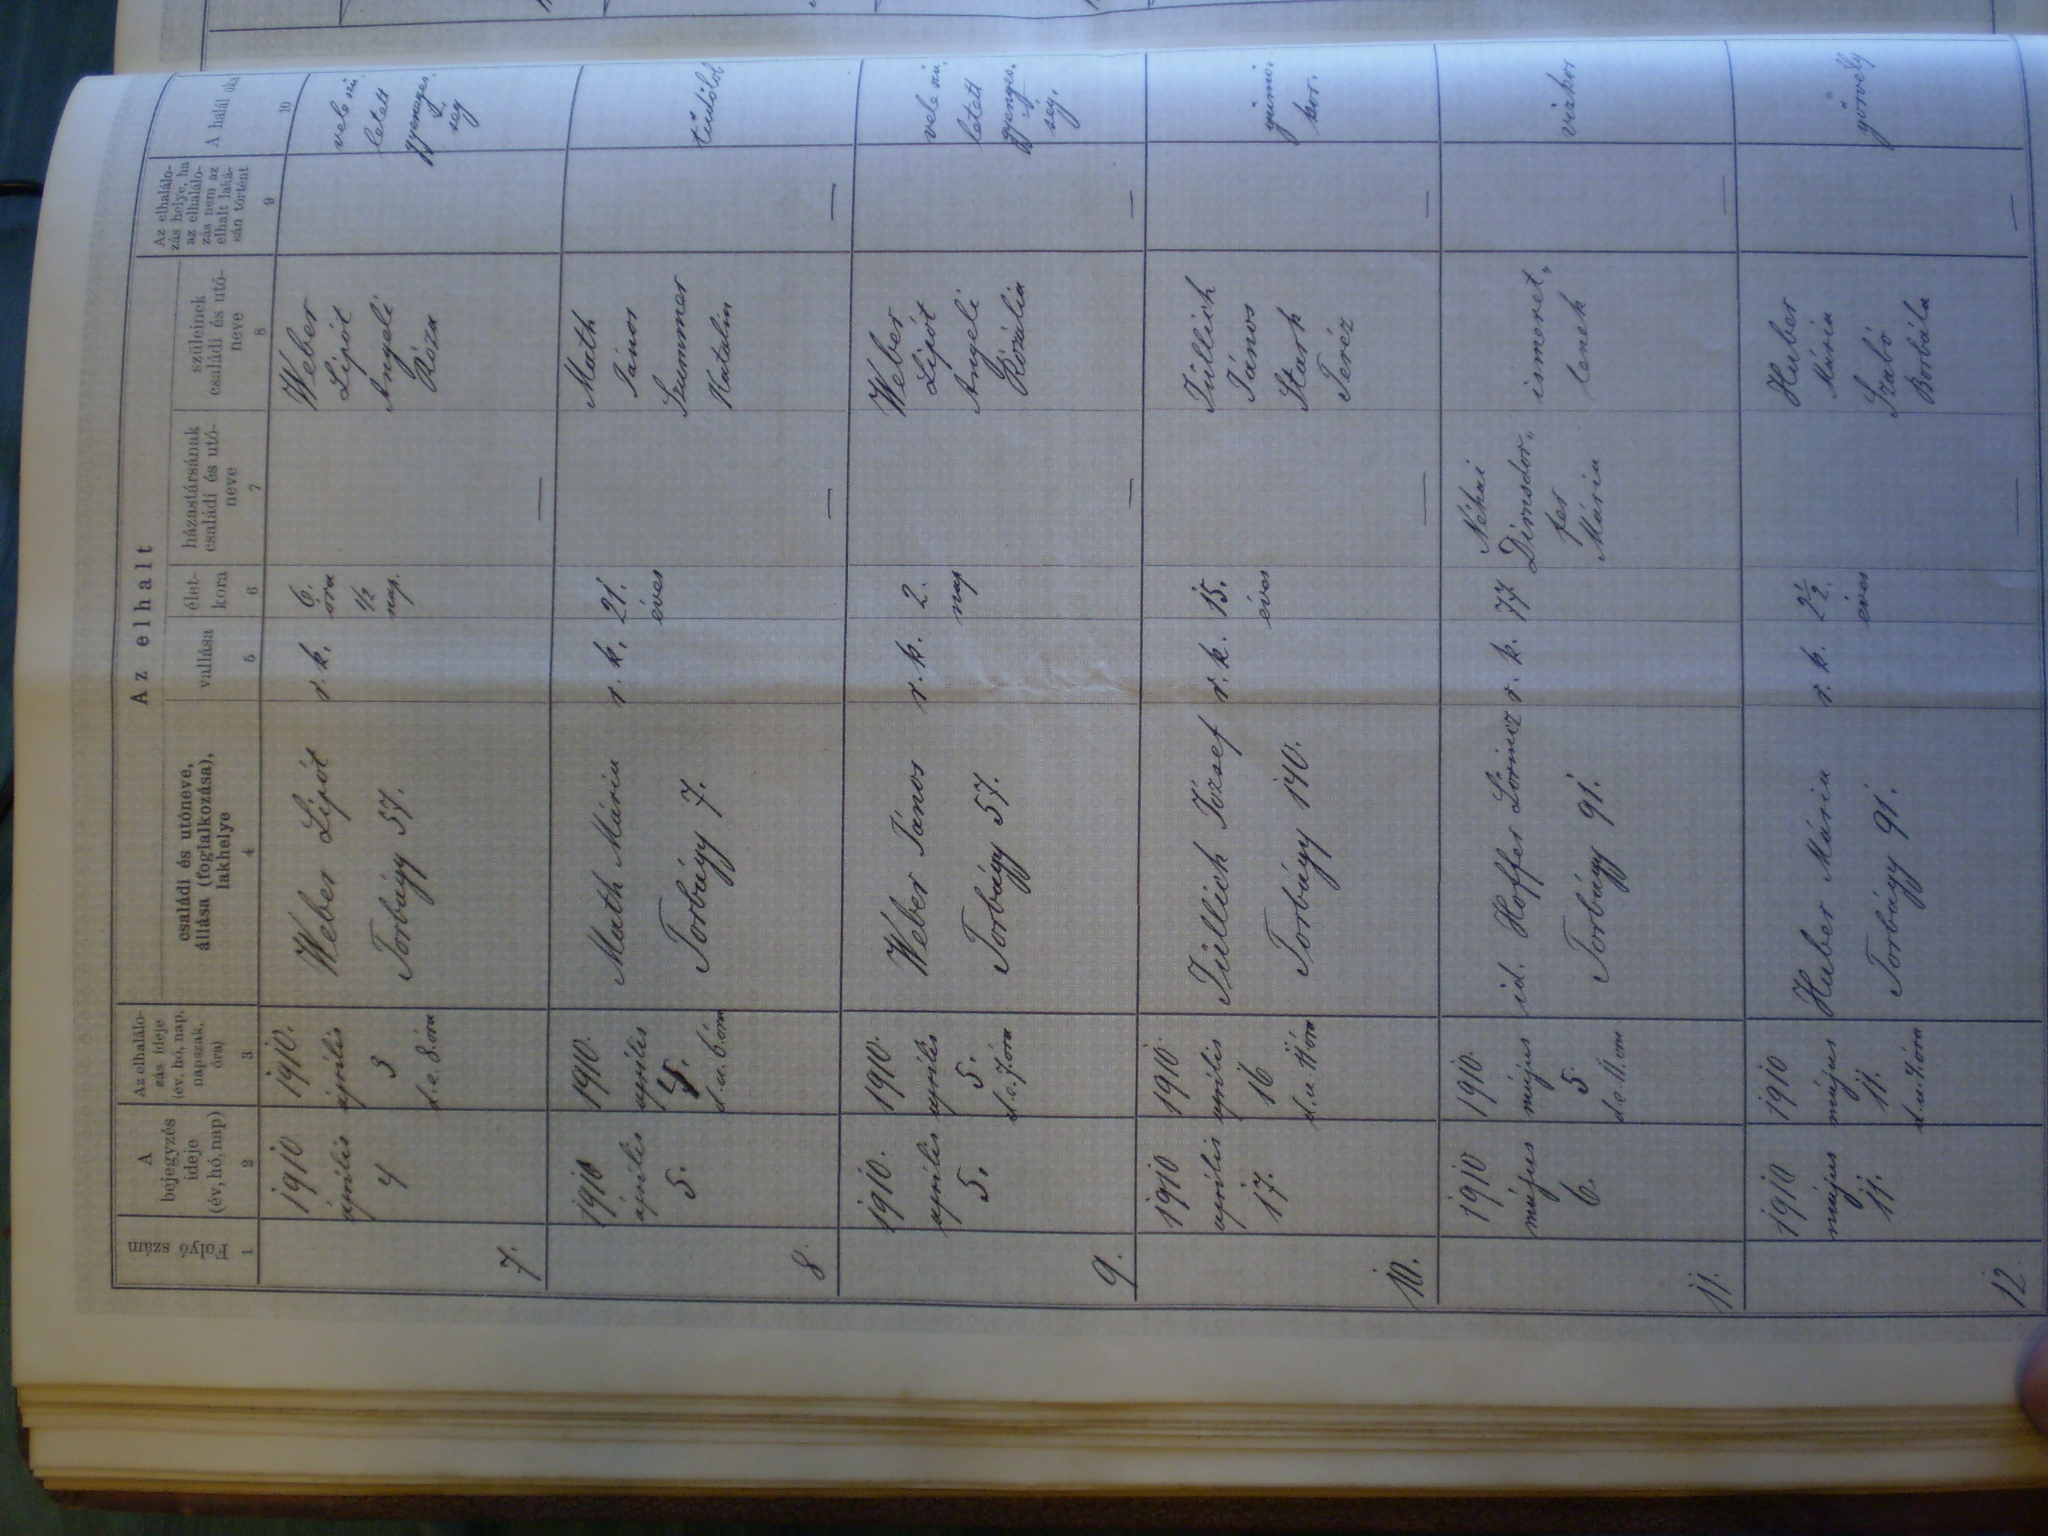 Az elhalt
Folyó szám
A
bejegyzés
ideje
(év, hó, nap)
Az elhalálo-
zás ideje
(év, hó, nap,
napszak,
óra)
családi és utóneve,
állása (foglalkozása),
lakhelye
vallása
élet-
kora
házastársának
családi és utó-
neve
szüleinek
családi és utó-
neve
Az elhalálo-
zás helye, ha
az elhalálo-
zás nem az
elhalt laká-
sán történt
A halál oka
1
2
3
4
5
6
7
8
9
10
7.
1910.
április
4
1910.
április
3
d.e. 8. óra
Weber Lipót
Torbágy 57.
r. k.
6.
óra
1/2
nap.
—
Weber
Lipót
Angeli
Róza
vele szü.
letett
gyenges.
ség
8.
1910
április
5.
1910.
április
d.u. 6. óra
Math Mária
Torbágy 7.
r. k.
21.
éves
—
Math
János
Szummer
Katalin
—
tüdőlob
9.
1910.
április
5.
1910.
április
5.
d.e. 7. óra
Weber János
Torbágy 57.
r. k.
2.
nap
—
Weber
Lipót
Angeli
Rozália
—
vele szü.
letett
gyenges.
ség.
10.
1910
április
17.
1910.
április
16
d.u. 11 óra
Füllich József
Torbágy 140.
r. k.
15.
éves
—
Füllich
János
Stark
Teréz
—
gümő.
kor.
11.
1910
május
6.
1910.
május
5.
d.e. 11. óra
id. Hoffer Lőrincz
Torbágy 91.
r. k.
77
Néhai
Dirnsdor„
fer
Mária
ismeret„
lenek
—
vízkór
12.
1910
május
11.
1910
május
11.
Huber Mária
Torbágy 91.
r. k.
2 1/2.
éves
—
Huber
Mária
Szabó
Borbála
—
görvély